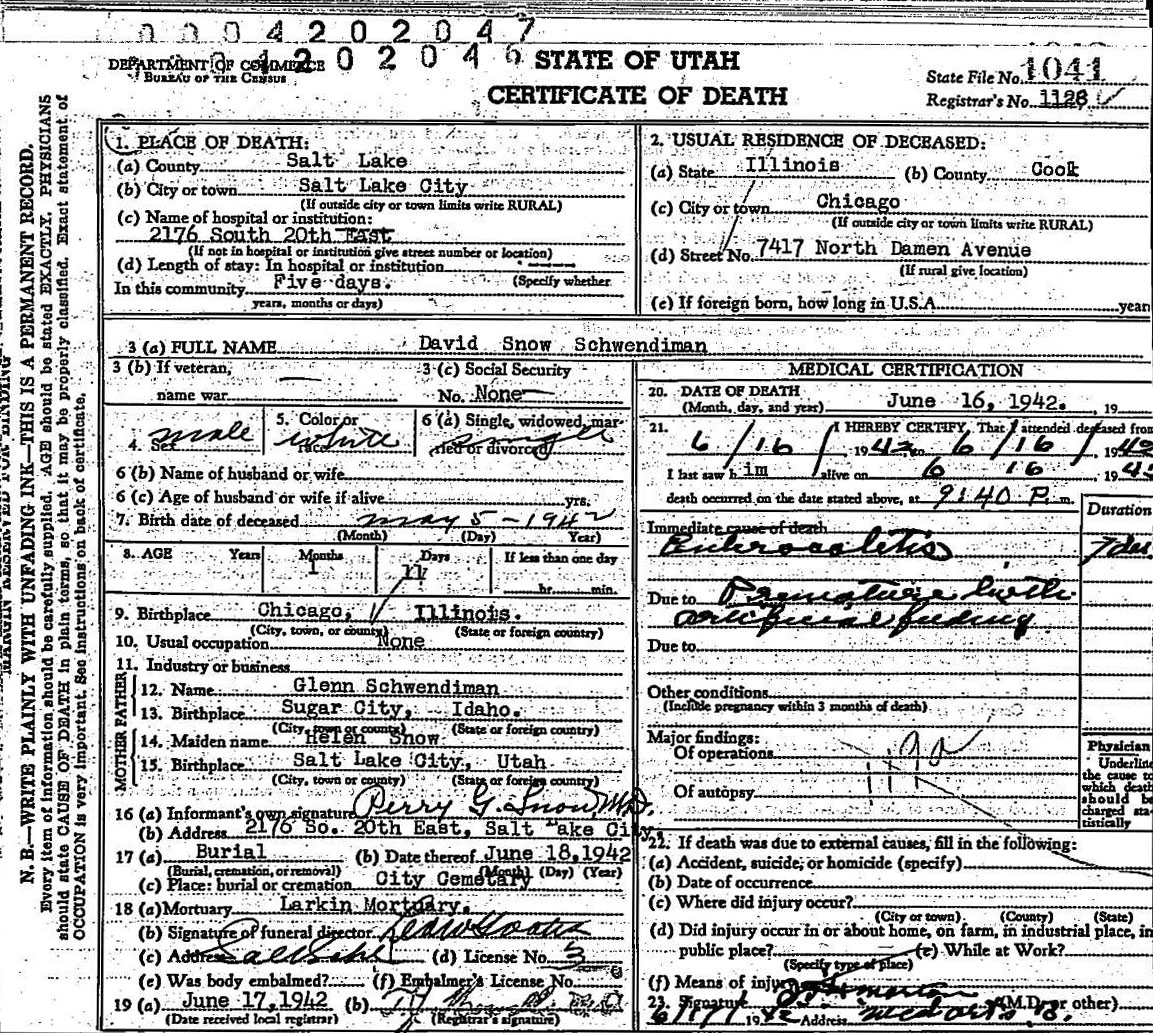 0004202047
DEPARTMENT OF COMMERCE 04202046 STATE OF UTAH
BUREAU OF THE CENSUS
CERTIFICATE OF DEATH
State File No. 1041
Registrar's No. 1128
N. B.—WRITE PLAINLY WITH UNFADING INK—THIS IS A PERMANENT RECORD.
Every item of information should be carefully supplied. AGE should be stated EXACTLY. PHYSICIANS
should state CAUSE OF DEATH in plain terms, so that it may be properly classified. Exact statement of
OCCUPATION is very important. See instructions on back of certificate.
MARGIN RESERVED FOR BINDING
1. PLACE OF DEATH:
(a) County Salt Lake
(b) City or town Salt Lake City
(If outside city or town limits write RURAL)
(c) Name of hospital or institution:
2176 South 20th East
(If not in hospital or institution give street number or location)
(d) Length of stay: In hospital or institution
(Specify whether
In this community Five days.
years, months or days)
2. USUAL RESIDENCE OF DECEASED:
(a) State Illinois (b) County Cook
(c) City or town Chicago
(If outside city or town limits write RURAL)
(d) Street No. 7417 North Damen Avenue
(If rural give location)
(e) If foreign born, how long in U.S.A. year
3 (a) FULL NAME David Snow Schwendiman
3 (b) If veteran, 3 (c) Social Security
name war No. None
4. Sex male 5. Color or race white 6 (a) Single, widowed, married or divorced single
6 (b) Name of husband or wife
6 (c) Age of husband or wife if alive yrs.
7. Birth date of deceased may 5 - 1942
(Month) (Day) Year)
8. AGE Years Months Days If less than one day
1 11
hr. min.
9. Birthplace Chicago, Illinois.
(City, town, or county) (State or foreign country)
10. Usual occupation None
11. Industry or business
FATHER
12. Name Glenn Schwendiman
13. Birthplace Sugar City, Idaho.
(City, town or county) (State or foreign country)
MOTHER
14. Maiden name Helen Snow
15. Birthplace Salt Lake City, Utah
(City, town or county) (State or foreign country)
16 (a) Informant's own signature Perry G. Snow, M.D.
(b) Address 2176 So. 20th East, Salt Lake City.
17 (a) Burial (b) Date thereof June 18,1942
(Burial, cremation, or removal) (Month) (Day) (Year)
(c) Place: burial or cremation City Cemetary
18 (a) Mortuary Larkin Mortuary.
(b) Signature of funeral director
(c) Address Salt Lake (d) License No. 3
(e) Was body embalmed? (f) Embalmer's License No.
19 (a) June 17,1942 (b)
(Date received local registrar) (Registrar's signature)
MEDICAL CERTIFICATION
20. DATE OF DEATH
(Month, day, and year) June 16, 1942. , 19
21. I HEREBY CERTIFY, That I attended deceased from
6/16 , 1942 to 6/16/ , 1942
I last saw h im alive on 6 16 , 1942
death occurred on the date stated above, at 9:40 P. m.
Duration
Immediate cause of death
Enterocolitis 7 das.
Due to Premature birth
artificial feeding
Due to
Other conditions
(Include pregnancy within 3 months of death)
Major findings:
Of operations
119a
Of autopsy
Physician
Underline
the cause to
which death
should be
charged sta-
tistically
22. If death was due to external causes, fill in the following:
(a) Accident, suicide, or homicide (specify)
(b) Date of occurrence
(c) Where did injury occur?
(City or town) (County) (State)
(d) Did injury occur in or about home, on farm, in industrial place, in
public place? (e) While at Work?
(Specify type of place)
(f) Means of injury
23. Signature (M.D. or other)
6/17/ 1942 Address Med arts B.